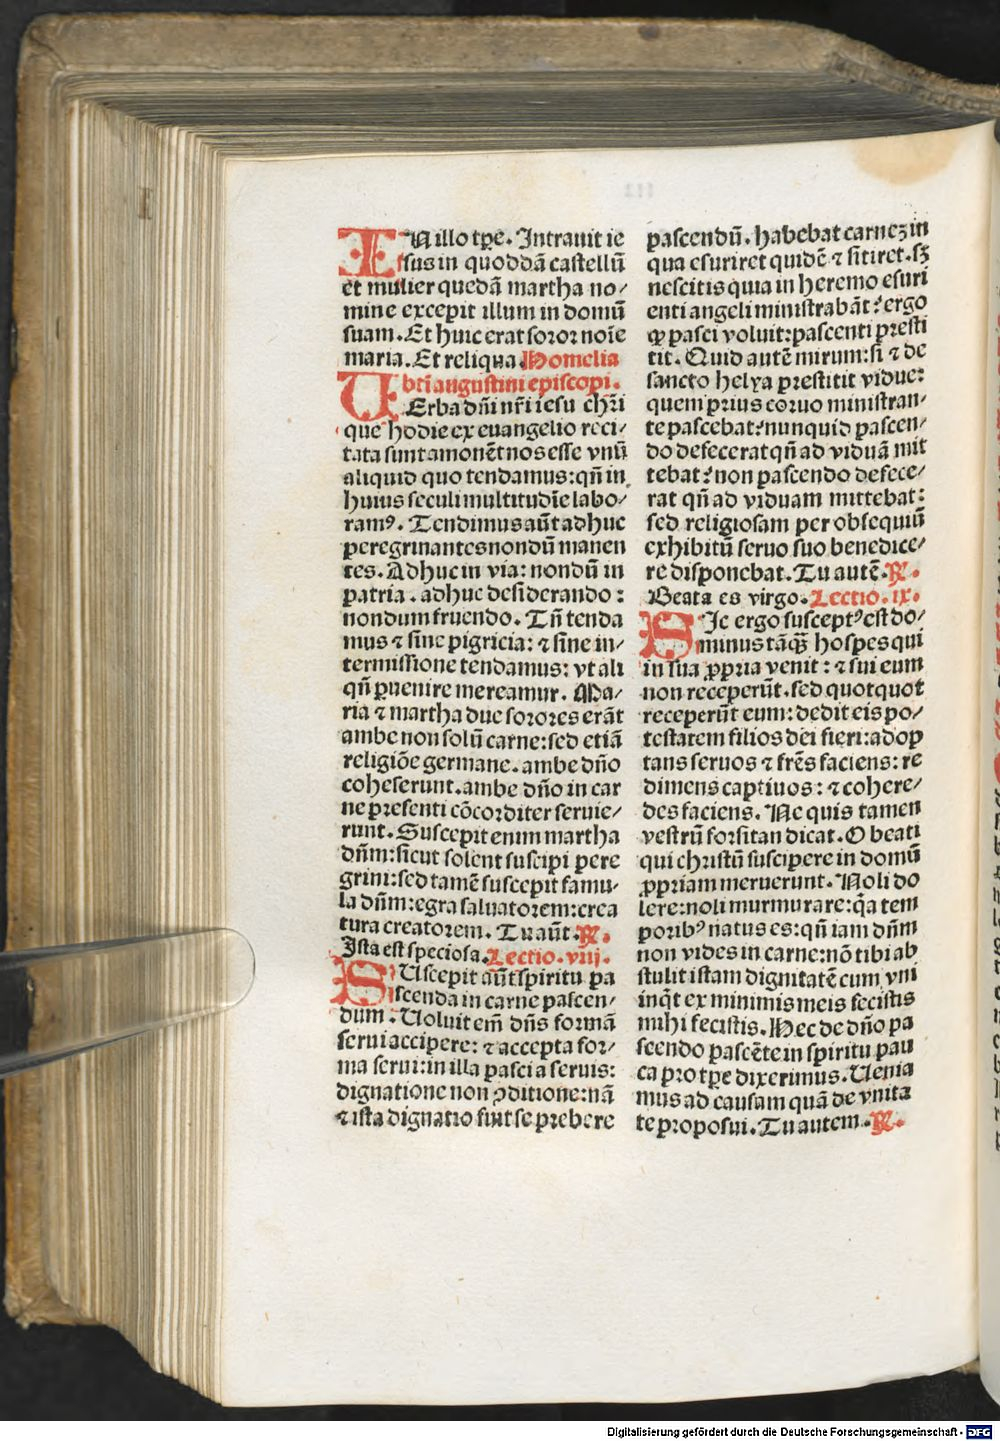 IN illo tp̄e. Intrauit ie
sus in quoddā castellū
et mulier quedā martha no/
mine excepit illum in domū
suam. Et huic erat soror noīe
maria. Et reliqua. Homelia
bt̄i augustini episcopi.
VErba dn̄i nr̄i iesu chr̄i
que hodie ex euangelio reci/
tata sunt amonēt nos esse vnū
aliquid quo tendamus: qn̄ in
huius seculi multitudīe labo/
ramꝰ. Tendimus aūt adhuc
peregrinantes nondū manen
tes. Adhuc in via: nondū in
patria. adhuc desiderando:
nondum fruendo. Tn̄ tenda
mus ⁊ sine pigricia: ⁊ sine in/
termissione tendamus: vt ali
qn̄ ꝑuenire mereamur. Ma/
ria ⁊ martha due sorores erāt
ambe non solū carne: sed etiā
religiōe germane. ambe dn̄o
coheserunt. ambe dn̄o in car
ne presenti cōcorditer seruie/
runt. Suscepit enim martha
dn̄m: sicut solent suscipi pere
grini: sed tamē suscepit famu/
la dn̄m: egra saluatorem: crea
tura creatorem. Tu aūt. ℟.
Ista est speciosa. Lectio. viij.
SUscepit aūt spiritu pa
scenda in carne pascen/
dum. Uoluit em̄ dn̄s formā
serui accipere: ⁊ accepta for/
ma serui: in illa pasci a seruis:
dignatione non ꝯditione: nā
⁊ ista dignatio fuit se prebere
pascendū. habebat carnēꝫ in
qua esuriret quidē ⁊ sitiret. sꝫ
nescitis quia in heremo esuri
enti angeli ministrabāt? ergo
ꝙ pasci voluit: pascenti presti
tit. Quid autē mirum: si ⁊ de
sancto helya prestitit vidue:
quem prius coruo ministran/
te pascebat? nunquid pascen/
do defecerat qn̄ ad viduā mit
tebat? non pascendo defece/
rat qn̄ ad viduam mittebat:
sed religiosam per obsequiū
exhibitū seruo suo benedice/
re disponebat. Tu autē. ℟.
Beata es virgo. Lectio. ix.
SIc ergo susceptꝰ est do/
minus tāꝙ̄ hospes qui
in sua ꝓpria venit: ⁊ sui eum
non receperūt. sed quotquot
receperūt eum: dedit eis po/
testatem filios dei fieri: adop
tans seruos ⁊ fr̄es faciens: re
dimens captiuos: ⁊ cohere/
des faciens. Ne quis tamen
vestrū forsitan dicat. O beati
qui christū suscipere in domū
ꝓpriam meruerunt. Noli do
lere: noli murmurare: q̄a tem
poribꝰ natus es: qn̄ iam dn̄m
non vides in carne: nō tibi ab
stulit istam dignitatē cum vni
inq̄t ex minimis meis fecistis
mihi fecistis. Hec de dn̄o pa
scendo pascēte in spiritu pau
ca pro tp̄e dixerimus. Uenia
mus ad causam quā de vnita
te proposui. Tu autem. ℟.
Digitalisierung gefördert durch die Deutsche Forschungsgemeinschaft - DFG